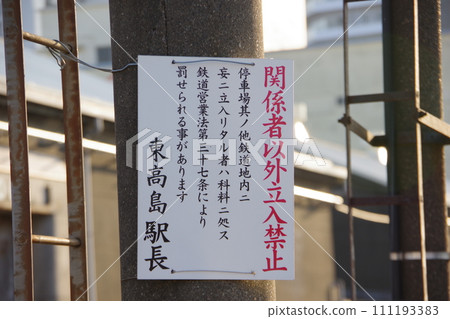 関係者以外立入禁止
停車場其ノ他鉄道地内ニ
妄ニ立入リタル者ハ科料ニ処ス
鉄道営業法第三十七条により
罰せられる事があります
東高島駅長
111193383